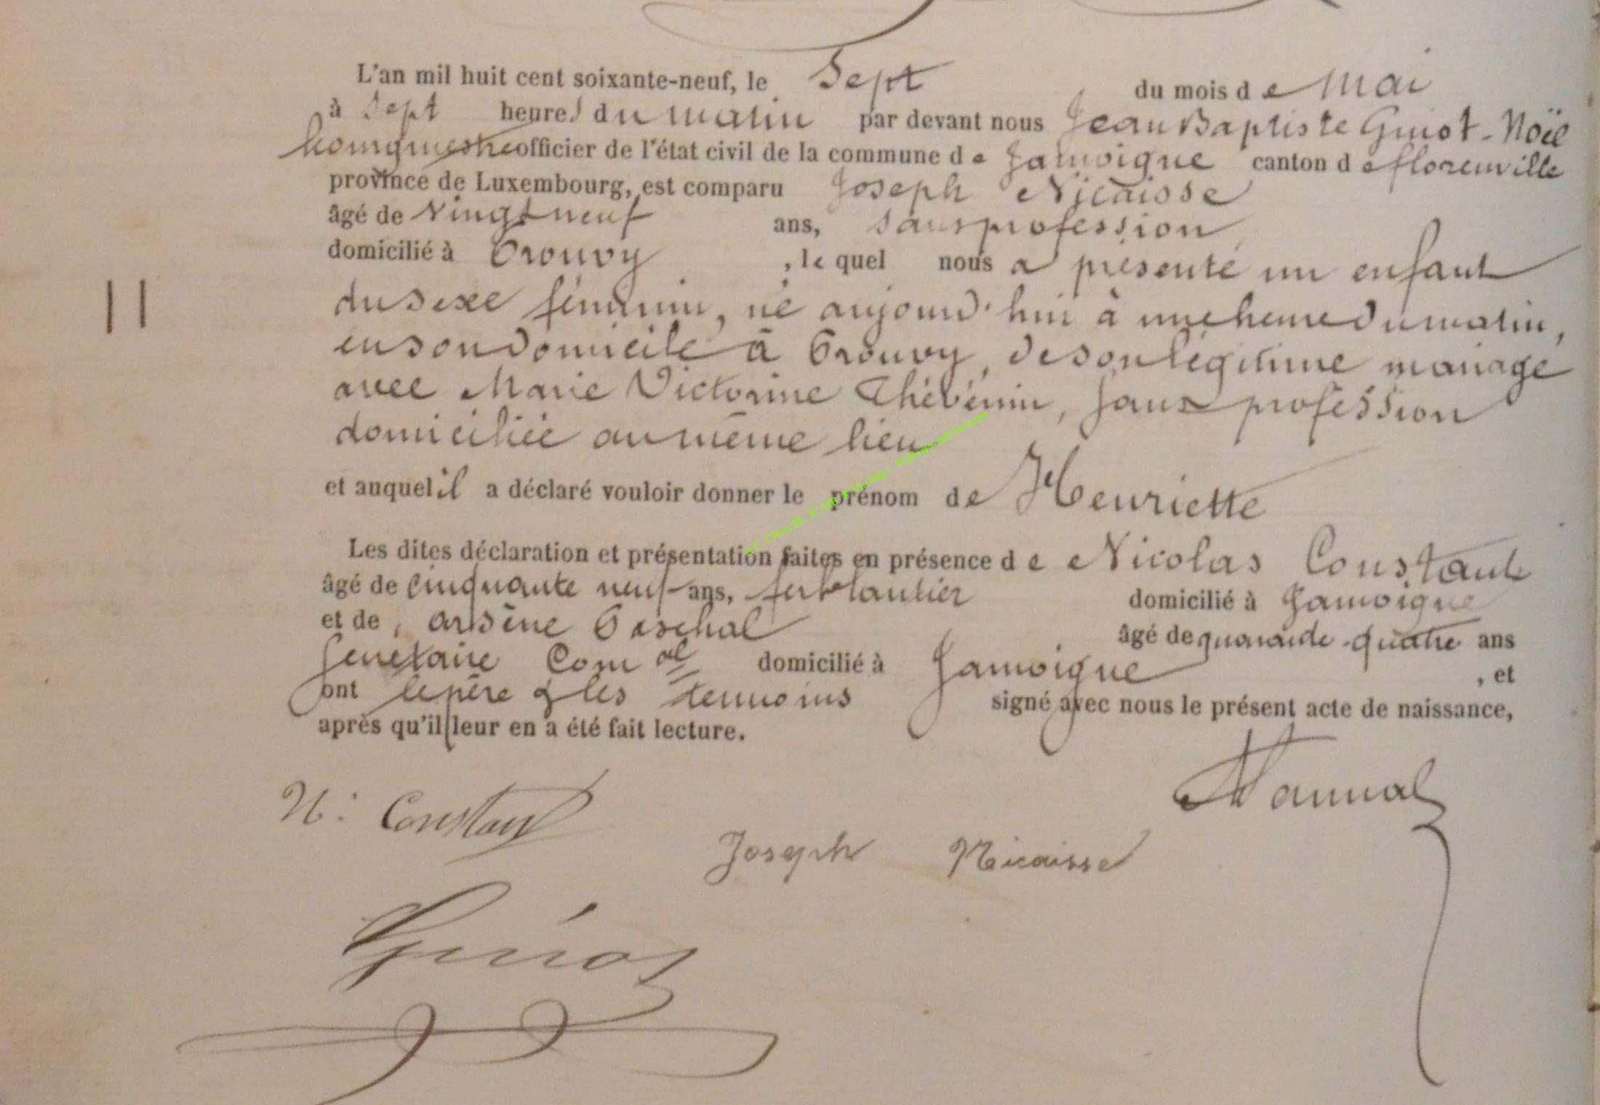 L'an mil huit cent soixante-neuf, le Sept du mois de Mai
à Sept heures du matin par devant nous Jean Baptiste Guiot-Noël
bourgmestre officier de l'état civil de la commune de Jamoigne canton de florenville
province de Luxembourg, est comparu Joseph Nicaisse
âgé de Vingt neuf ans, sans profession
domicilié à Prouvy, le quel nous a présenté un enfant
du sexe féminin, né aujourd'hui à une heure du matin,
en son domicile à Prouvy, de son légitime mariage
avec Marie Victorine Thévénin, sans profession
domiciliée au même lieu
et auquel il a déclaré vouloir donner le prénom de Henriette
Les dites déclaration et présentation faites en présence de Nicolas Constant
âgé de cinquante neuf ans, ferblantier domicilié à Jamoigne
et de, arsène Paschal âgé de quarante-quatre ans
Secrétaire Com al domicilié à Jamoigne, et
ont le père & les temoins signé avec nous le présent acte de naissance,
après qu'il leur en a été fait lecture.
II
N. Constant
Joseph Nicaisse
Guiot